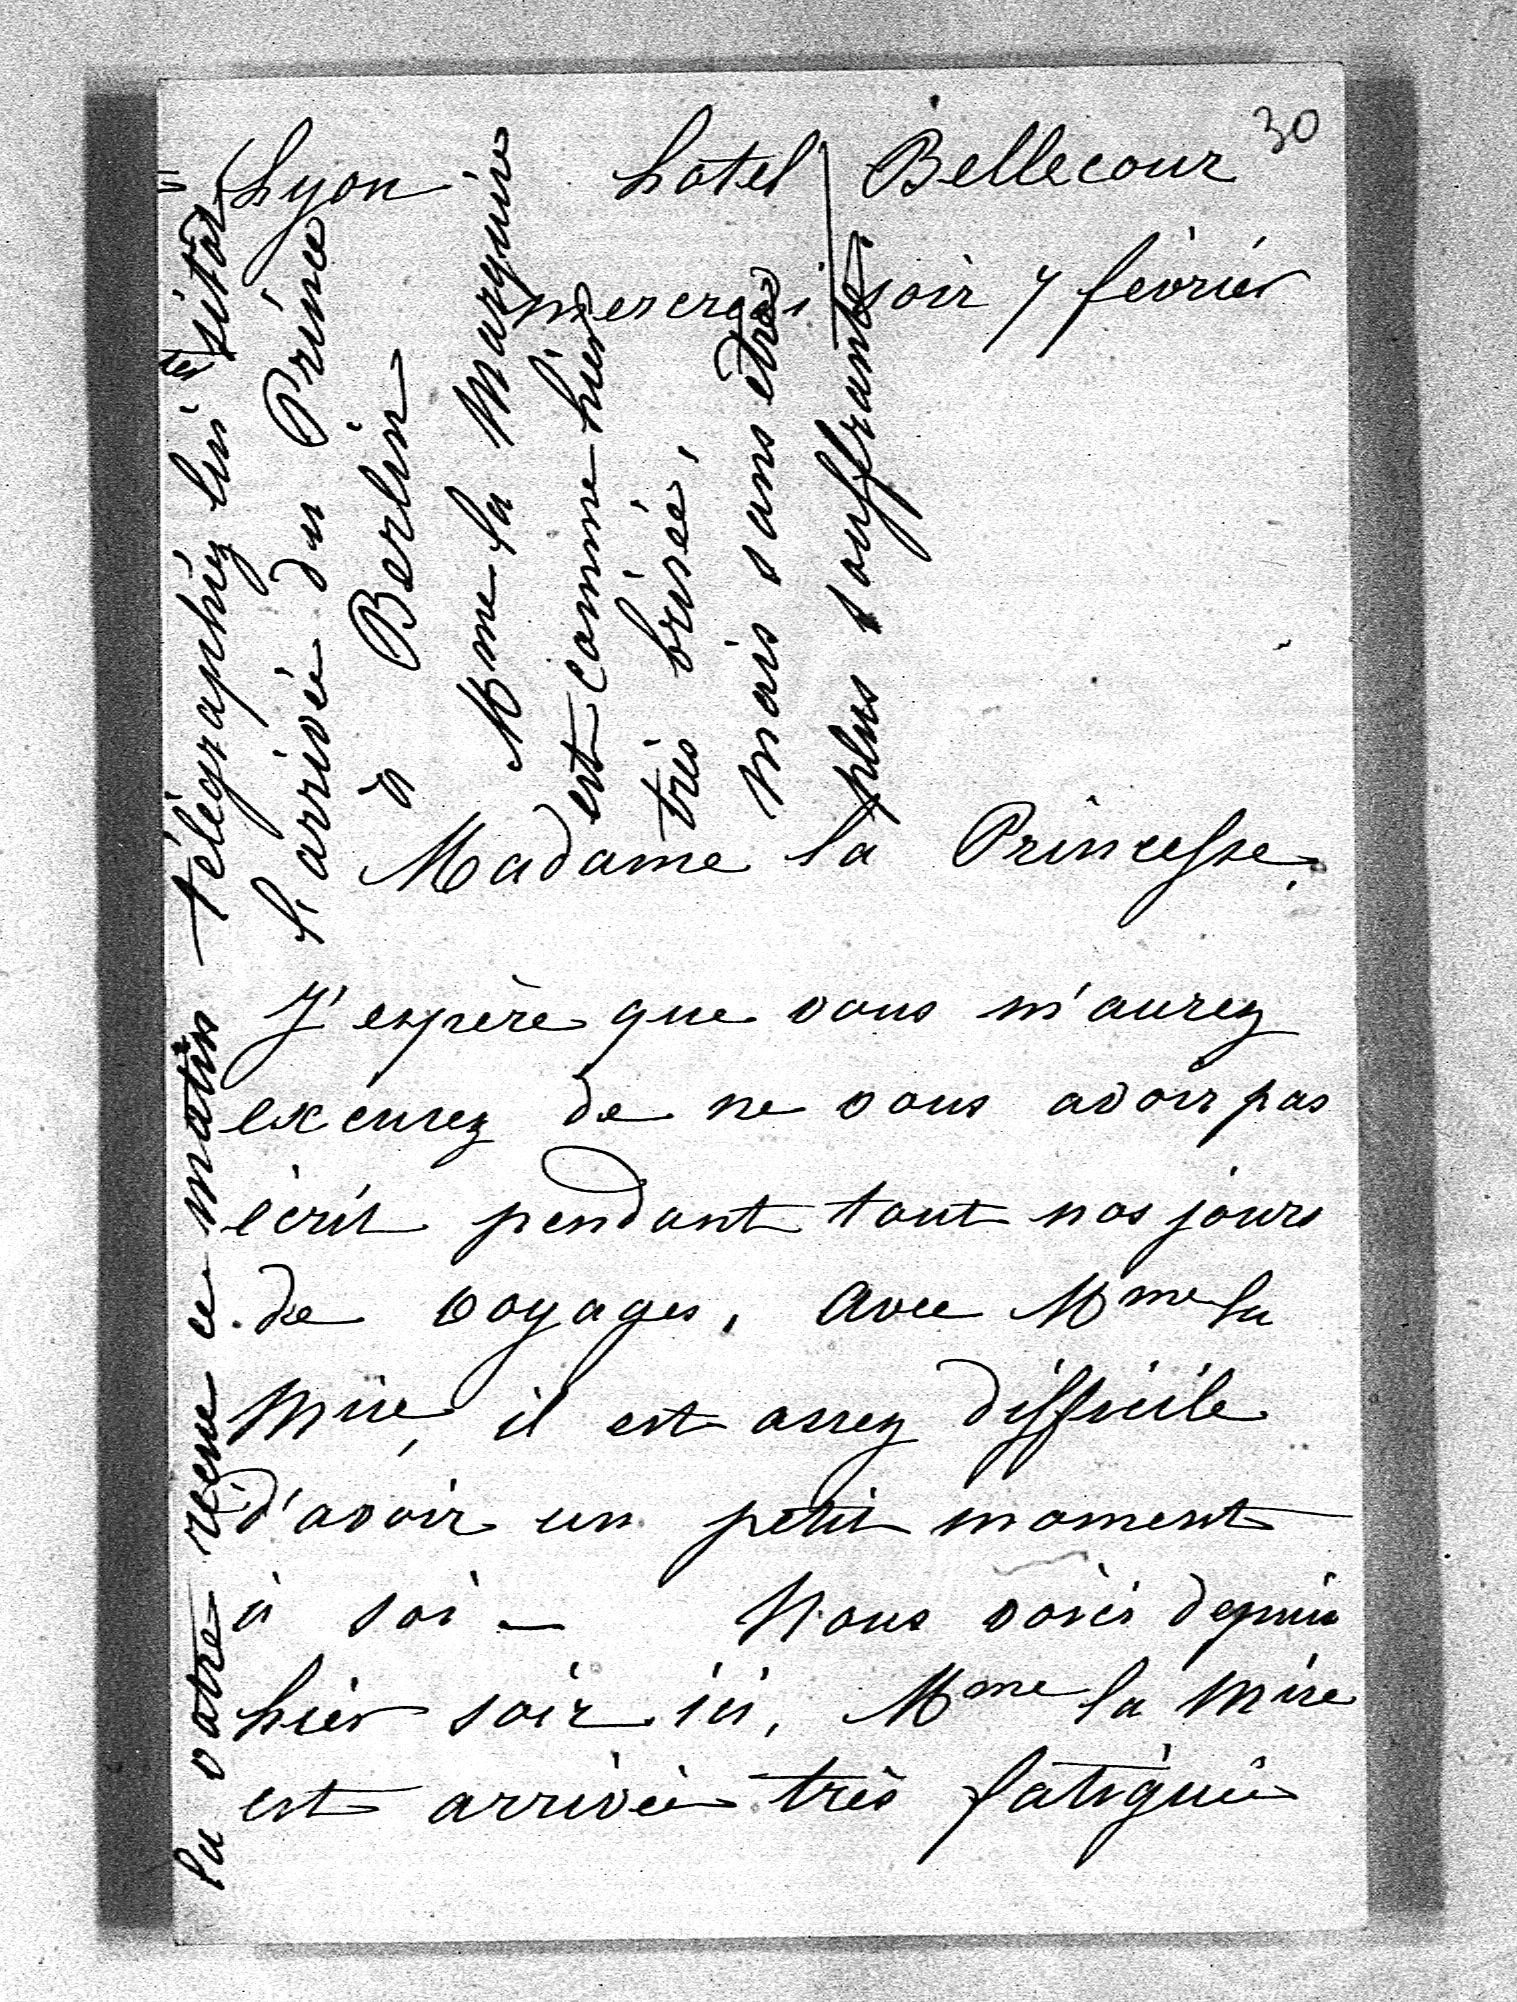 30
Lyon hotel Bellecour
mercredi soir 7 février
Madame la Princesse,
J'espère que vous m'aurez
excusez de ne vous avoir pas
écrit pendant tout nos jours
de voyages, avec Mme la
Mise, il est assez difficile
d'avoir un petit moment
à soi — Nous voici depuis
hier soir ici, Mme la Mise
est arrivée très fatiguée
la votre recue ce matin télégraphiez lui sitôt
l'arrivée du Prince
à Berlin
Mme la Marquise
est comme hier
très brisée,
mais sans être
plus souffrante.